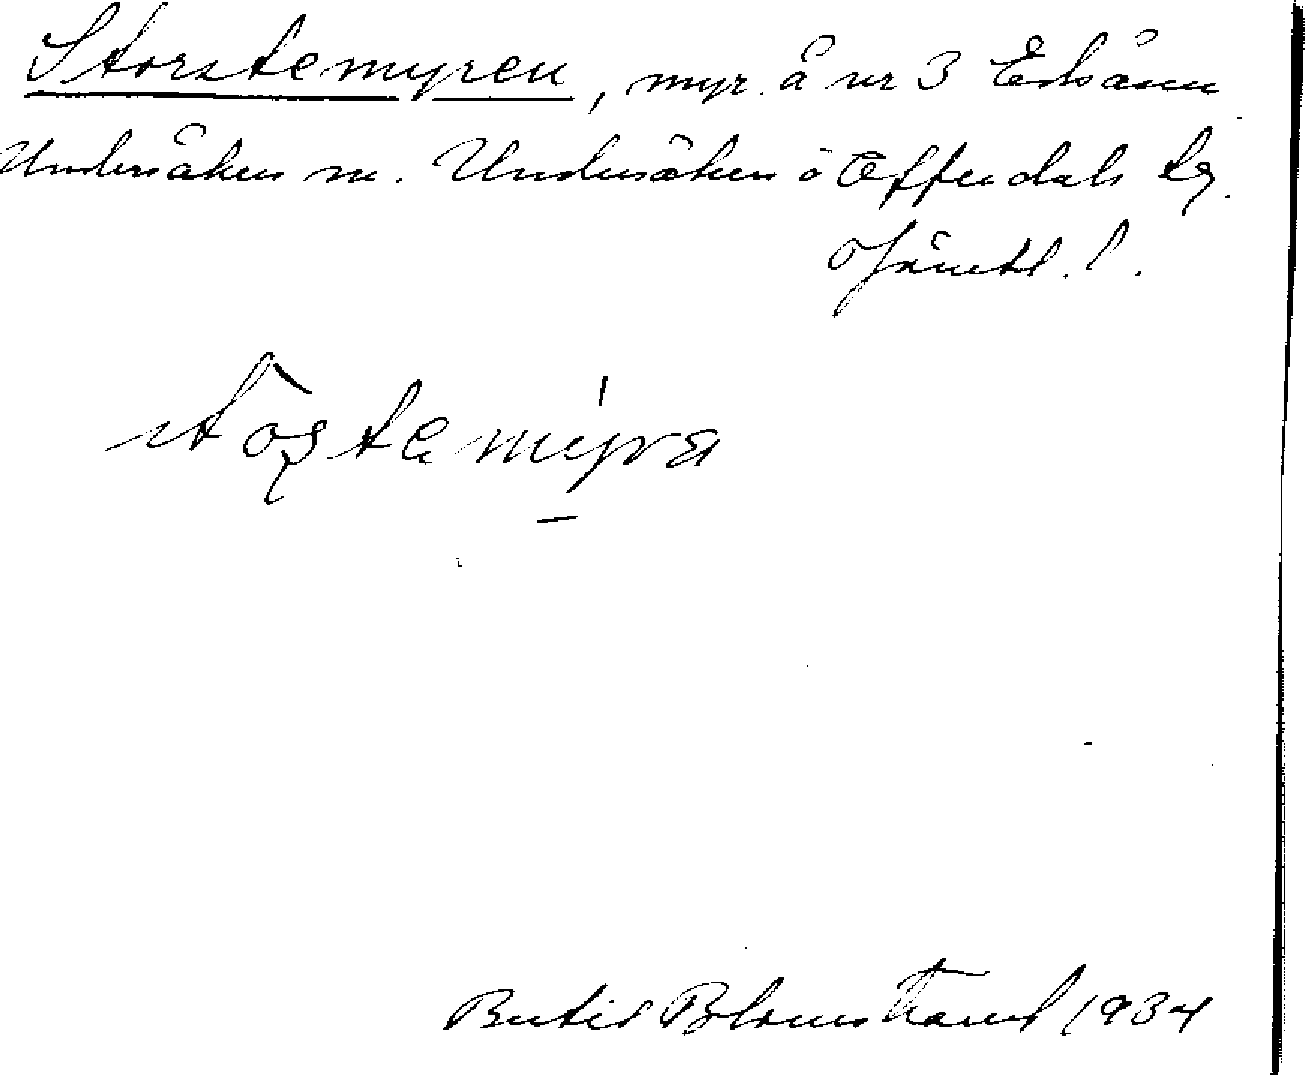 Storstemyren, myr å nr 3 Edsåsen
Undersåkers sn. Undersåkers o Offerdals tg.
Jämtl. l.
stoştemyra
Bertil Blomstrand 1934